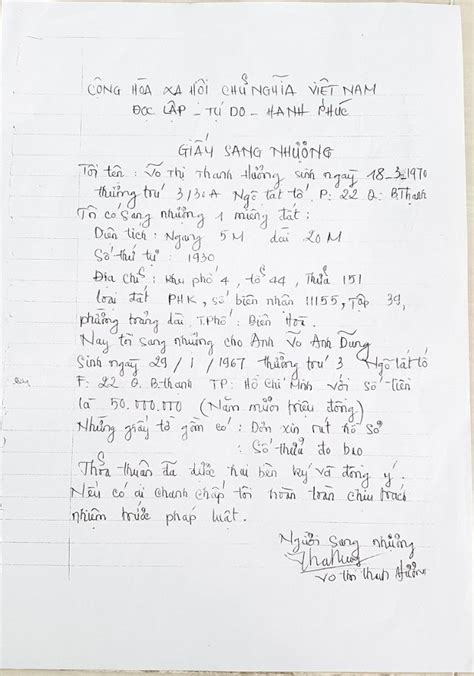 CÔNG HÒA XA HÔI CHỦ NGHĨA VIỆT NAM
ĐỌC LẬP - TỰ DO - HANH PHÚC
GIẤY SANG NHƯỢNG
Tôi tên : Võ Thị Thanh Hưởng sinh ngày 18-3-1970
thường trú 3/3c A Ngô tất tố. P: 22 Q: B Thạnh
Tôi có Sang nhượng 1 miếng đất :
Diện tích : Ngang 5M dài 20M
Số thứ tự : 1930
Địa chỉ : Khu phố 4, tổ 44, Thửa 151
loại đất PHK, số biên nhận 11155, Tập 39,
phường trảng dài, T.Phố : Biên Hoà.
Nay tôi sang nhượng cho Anh Võ Anh Dũng
Sinh ngày 29/1/1967 thường trú 3 Ngô tất tố
F: 22 Q. B.thanh TP: Hồ Chí Minh với số tiền
là 50.000.000 (Năm mươi triệu đồng)
Những giấy tờ gồm có : Đơn xin rút hồ sơ
: Số thửa đo bao
Thỏa thuận đã được hai bên ký và đồng ý.
Nếu có ai chanh chấp tôi hoàn toàn chiu trach
nhiệm trước pháp luật.
Người Sang nhượng
Võ thi thanh Hưởng